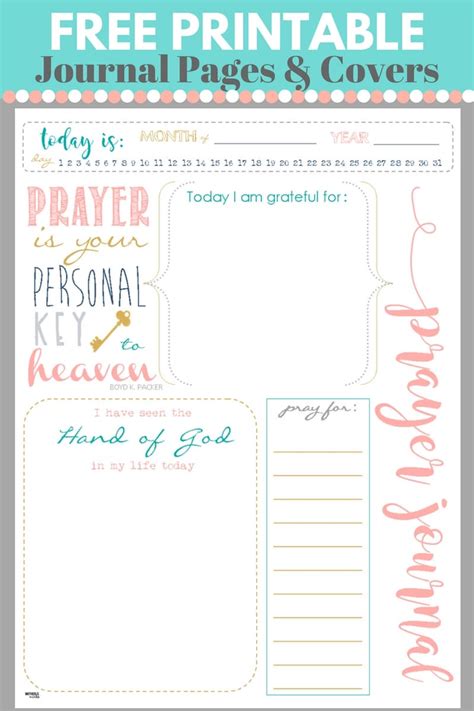 FREE PRINTABLE
Journal Pages & Covers
today is: MONTH of YEAR
day 1 2 3 4 5 6 7 8 9 10 11 12 13 14 15 16 17 18 19 20 21 22 23 24 25 26 27 28 29 30 31
PRAYER
is your
PERSONAL
KEY
to
heaven
BOYD K. PACKER
Today I am grateful for:
prayer journal
I have seen the
Hand of God
in my life today
pray for: